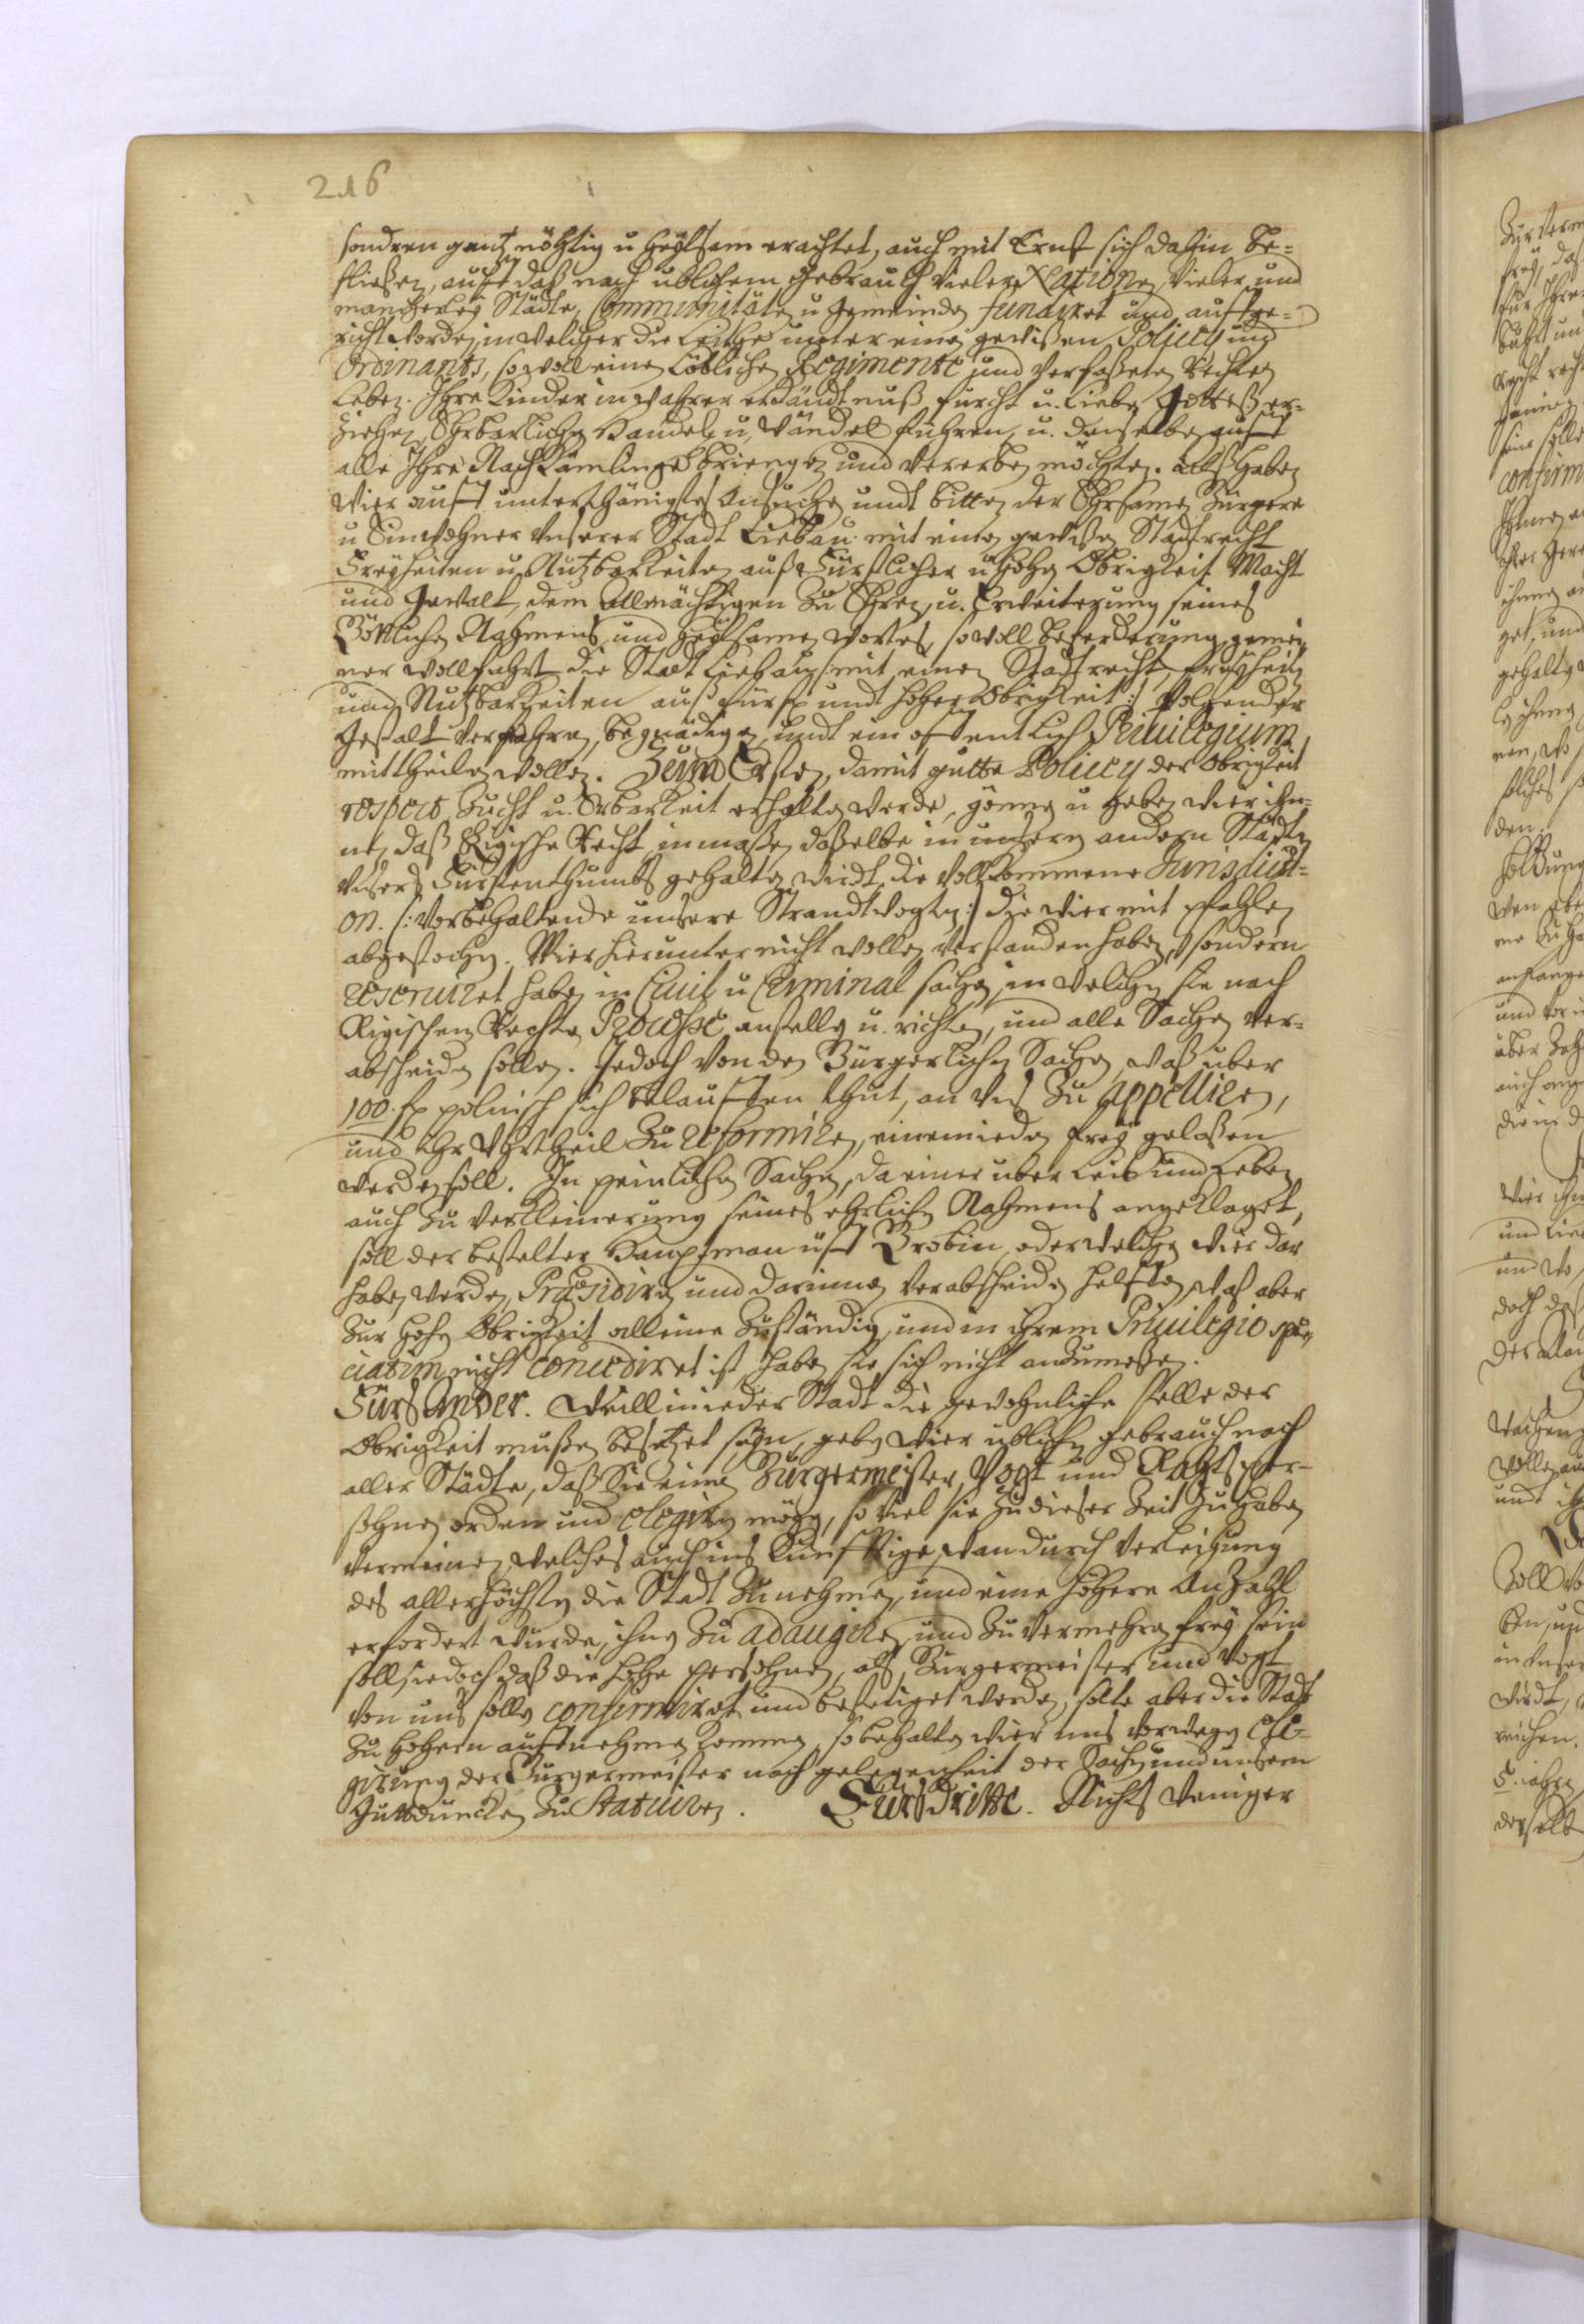 216
sondren gantz nöhtig u heylsam erachtet, auch mit Ernst sich dahin be=
fließen, auff daß nach ublichem Gebrauch vieler Nationen, vieler und
mancherley Städte, Communitäten u Gemeinden fundiret und auffge=
richt worden, in welcher die Leuthe unter einen gewißen Policey und
Ordinants, so woll einen Löblichen Regimente und verfaßeten Rechten
Leben. Ihre Kinder in wahrer erkändtnuß furcht u. Liebe Gottes er=
ziehen, Ehrbarliche Handel u. Wandel führen, u. denselben auff
alle Ihre Nachkömlinge bringen und vererben möchten. Alß haben
wier auff unterthänigstes Ansuchen undt bitten der Ehrsamen Bürgere
u Einwohner Unserer Stadt Liebau mit einen gewißen Stadtrecht
Freyheiten u Nutzbarkeiten auß Fürstlicher u Hohen Obrigkeit Macht
und Gewalt, dem Allmächtigen zu Ehren, u. Erweiterung seines
Göttlichen Nahmens und heylsamen wortes, so woll beforderung gemei=
ner wollfahrt die Stadt Liebau mit einen Stadtrecht, freyheiten
und Nutzbarkeiten auß fürstl. undt hoher Obrigkeit :/ volgender
Gestalt versehen, begnadigen, undt ein offentlich Priuilegium
mittheilen wollen. Zum Ersten, damit gutte Policey der Obrigkeit
respect, Zucht u. Erbarkeit erhalten werde, gönnen u geben wier ihn=
nen, daß Rigische Recht, inmaßen daßelbe in unsern andern Städten
Unsers Fürstenthumbs gehalten wirdt, die vollkommene Jurisdicti=
on. /: Vorbehaltende unsere Strandtvogtey :/ die wier mit pfahlen
abgestochen. Wier hierunter nicht wollen verstanden haben, sondern
reseruiret haben in Ciuil u Criminal sachen, in welchen sie nach
Rigischem Rechte Processe anstellen u. richten, und alle Sachen ver=
abscheiden sollen. Jedoch von den Bürgerlichen Sachen, waß uber
100. fl. polnisch sich belauffen thut, an Uns zu appelliren,
und ihr Uhrtheil zu reformiren, einemieden frey gelaßen
werden soll. In peinlichen Sachen, da einer uber Leib und Leben
auch zu verkleinerung seines ehrlichen Nahmens angeklaget,
soll der bestelter Hauptman uff Grobin, oder welchen wier dar
haben werden, Præsidiren und darinnen verabscheiden helffen, was aber
zur hohen Obrigkeit alleine zuständig, und in ihrem Priuilegio spe=
ciatim nicht concediret ist haben sie sich nicht anzumaßen.
Fürs Ander. Weill in der Stadt die gewohnliche stelle der
Obrigkeit mußen besetzet seyn, geben wier ublichen gebrauch nach
aller Städte, daß Sie einen Bürgermeister, Vogt und Rahtsper=
sohnen orden und eligiren mögen, so viel sie zu dieser Zeit zu haben
vermeinen, welches auch ins Künfftige, wan durch verleihung
des allerhöchsten die Stadt zunehmen, und eine höhere Anzahl
erfordert wurde, ihnen zu adaugiren, und zu vermehren frey sein
soll, jedoch daß die hohe persohnen, als Bürgermeister und Vogt
von uns sollen confirmiret und bestetiget werden, solte aber die Stadt
zu hohern auffnehmen kommen, so behalten wier uns vorwegen Eli=
girung der Bürgermeister nach gelegenheit der Sachen und unserm
Gutdüncken zu statuiren. Fürs Dritte. Nichts weniger